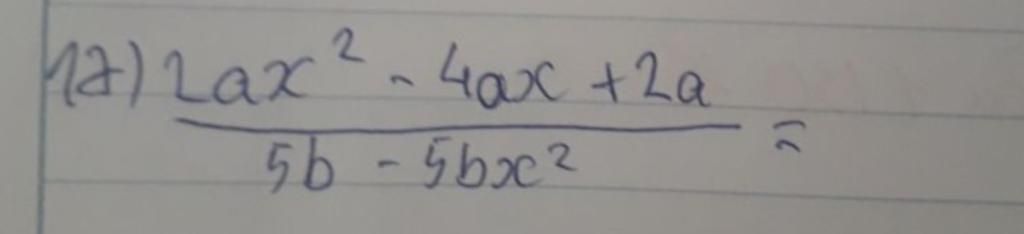 17) 2ax² - 4ax + 2a
5b - 5bx² =